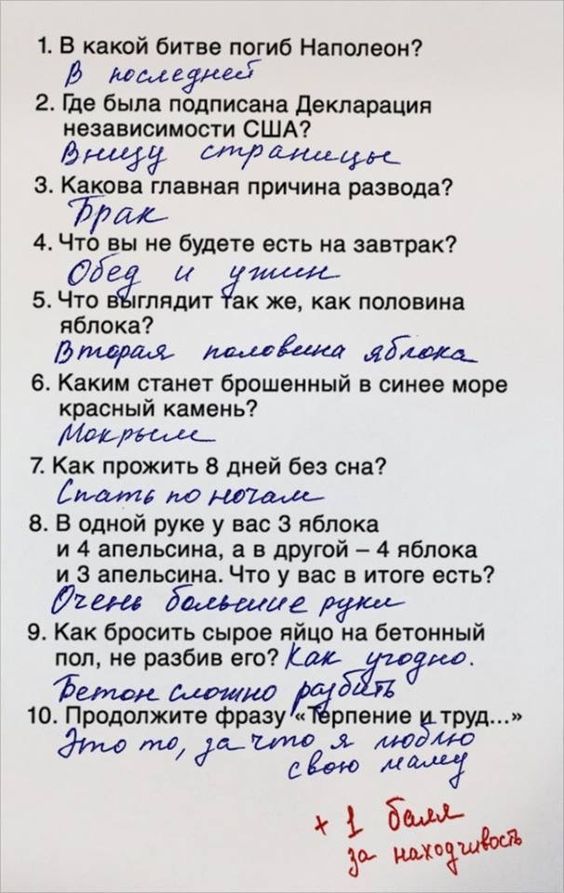 1. В какой битве погиб Наполеон?
В последней
2. Где была подписана Декларация
независимости США?
Внизу страницы
3. Какова главная причина развода?
Брак
4. Что вы не будете есть на завтрак?
Обед и ужин
5. Что выглядит так же, как половина
яблока?
Вторая половина яблока
6. Каким станет брошенный в синее море
красный камень?
Мокрым
7. Как прожить 8 дней без сна?
Спать по ночам
8. В одной руке у вас 3 яблока
и 4 апельсина, а в другой – 4 яблока
и 3 апельсина. Что у вас в итоге есть?
Очень большие руки
9. Как бросить сырое яйцо на бетонный
пол, не разбив его? Как угодно.
Бетон сложно разбить
10. Продолжите фразу «Терпение и труд...»
Это то, за что я люблю
свою маму
+ 1 балл
за находчивость